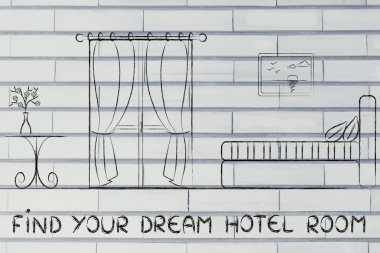 FIND YOUR DREAM HOTEL ROOM